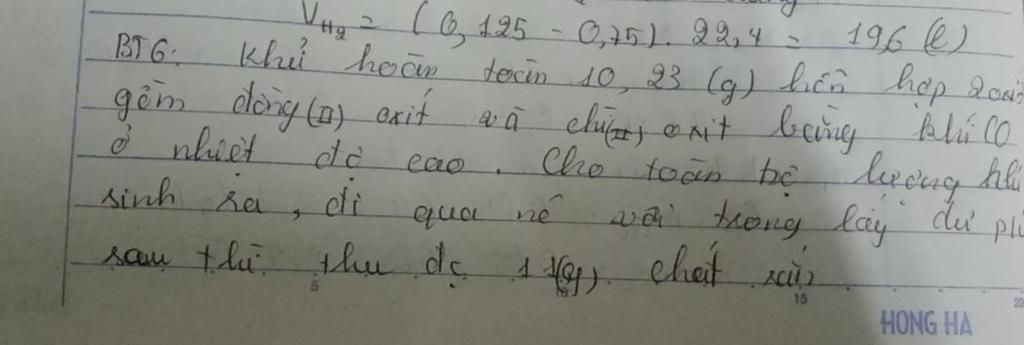 V_H2 = (0,125 - 0,75). 22,4 = 196 (l)
BT6: Khử hoàn toàn 10,23 (g) hỗn hợp 2 oxit
gồm đồng (II) oxit và chì (II) oxit bằng khí CO
ở nhiệt độ cao. Cho toàn bộ lượng khí
sinh ra, đi qua nô vôi trong lấy dư
sau thì thu đc 11(g) chất rắn
5 10 15 20
HONG HA